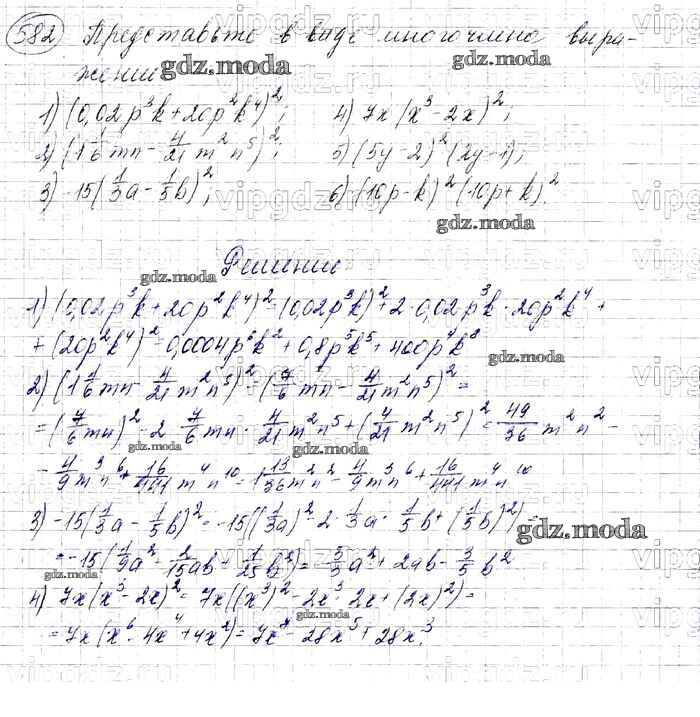 582 Представьте в виде многочлена выра-
жения
gdz.moda
1) (0,02p³k+20p²k⁴)²; 4) 7x(x³-2x)²;
2) (1 1/6 mn - 4/21 m²n⁵)²; 5) (5y-2)²(2y-1);
3) -15(1/3 a - 1/5 b)²; 6) (10p-k)²(10p+k)².
gdz.moda
Решение
gdz.moda
1) (0,02p³k+20p²k⁴)²=(0,02p³k)²+2·0,02p³k·20p²k⁴+
+(20p²k⁴)²=0,0004p⁶k²+0,8p⁵k⁵+400p⁴k⁸
gdz.moda
2) (1 1/6 mn - 4/21 m²n⁵)²=(7/6 mn - 4/21 m²n⁵)²=
=(7/6 mn)²-2·7/6 mn·4/21 m²n⁵+(4/21 m²n⁵)²=49/36 m²n²-
-4/9 m³n⁶+16/441 m⁴n¹⁰=1 13/36 m²n²-4/9 m³n⁶+16/441 m⁴n¹⁰
gdz.moda
3) -15(1/3 a - 1/5 b)²=-15((1/3 a)²-2·1/3 a·1/5 b+(1/5 b)²)=
gdz.moda
=-15(1/9 a²-2/15 ab+1/25 b²)=-5/3 a²+2ab-3/5 b²
gdz.moda
4) 7x(x³-2x)²=7x((x³)²-2x³·2x+(2x)²)=
=7x(x⁶-4x⁴+4x²)=7x⁷-28x⁵+28x³.
gdz.moda